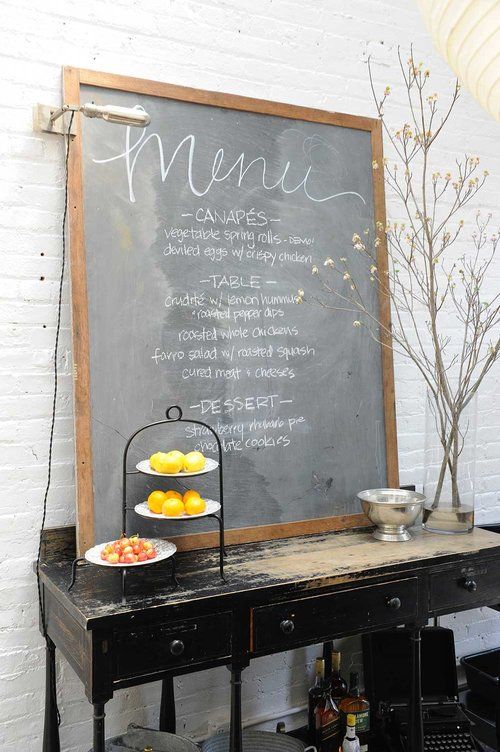 Menu
-CANAPÉS-
vegetable spring rolls - DEMO!
deviled eggs w/ crispy chicken
-TABLE-
crudité w/ lemon hummus
+ roasted pepper dips
roasted whole chickens
farro salad w/ roasted squash
cured meat + cheeses
-DESSERT-
strawberry rhubarb pie
chocolate cookies